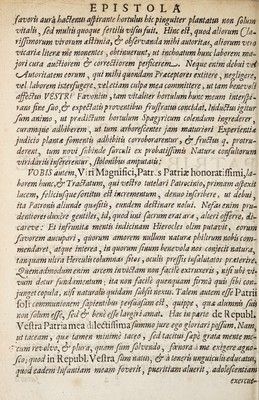 EPISTOLA
favoris aurâ hactenus aspirante hortulus hic pinguiter plantatus non solùm
vitalis, sed multis quoque fertilis visus fuit. Hinc est, quod aliorum Cla-
rissimorum virorum æstimia, & observanda mihi autoritas, aliorum verò
vicaria literæ me monentes, obtinuerunt, ut inchoatum hunc laborem ma-
jori cura auctiorem & correctiorem perficerem. Neque enim debui vel
Autoritatem eorum, qui mihi quondam Præceptores extitere, negligere,
vel laborem interfugere, vel etiam culpa mea committere, ut tam benevoli
affectus VESTRI Favonius, tam vitaliter hortulum hunc meum interspi-
rans sine suo, & expectatis proventibus frustratus concidat. Inductus igitur
sum animo, ut prædictum hortulum Spagyricum colendum ingrederer,
curamque adhiberem, ut tum arborescentes jam maturiori Experientiæ
judicio planta fomentis adhibitis corroborarentur, & fructus
derent, tum novi subinde surculi ex probatissimis Naturæ consultorum
viridariis infererentur, stolonibus amputatis:
VOBIS autem, Viri Magnifici, Patr's Patriæ honoratissimi, la-
borem hunc, & Tractatum, qui vestro tutelari Patrocinio, primum aspexit
lucem, feliciusque sensim est incrementum, denuo inscribere, ut debui, ita
ita Patronis aliunde quæsitis, eundem destinare nolui. Nefas enim pru-
dentiores duxere gentiles, id, quod uni sacrum erat aræ, alteri offerre, di-
carevè: Et infrunitæ mentis indicinam Hierocles olim putavit, eorum
favorem aucupari, quorum amorem nullum natura pilorum nobis com-
mendaret, atque interea, in quorum sinum benevolo nos conjecit natura,
tanquam ultra Herculis columnas sitos, oculis pressis insalutatos præterire.
Quemadmodum enim arcem invictam non facile extruxeris, nisi ubi vi-
vum detur fundamentum; ita non facile quenquam firmâ quis sibi con-
junget copulâ, nisi naturalis quidam subsit nexus. Talem autem esse Patriæ
soli communionem sapientibus persuasum est, quippe, quæ alienum sui
non solum esse, sed & bene esse largiri amat. Hac in parte de Republ.
Vestra Patria mea dilectissima summo jure ego gloriari possum. Nam,
ut taceam, quæ tamen minimè taceo, sed tacitus sæpè grata mente me-
cum revolvo, & plura, quàm sum solvendo, sæniora me exigere agno-
sco; quod in Republ. Vestra sim natus, & à teneris unguiculis educatus,
quod eadem infantiam meam foverit, pueritiam aluerit, adolescentiam
exercue-